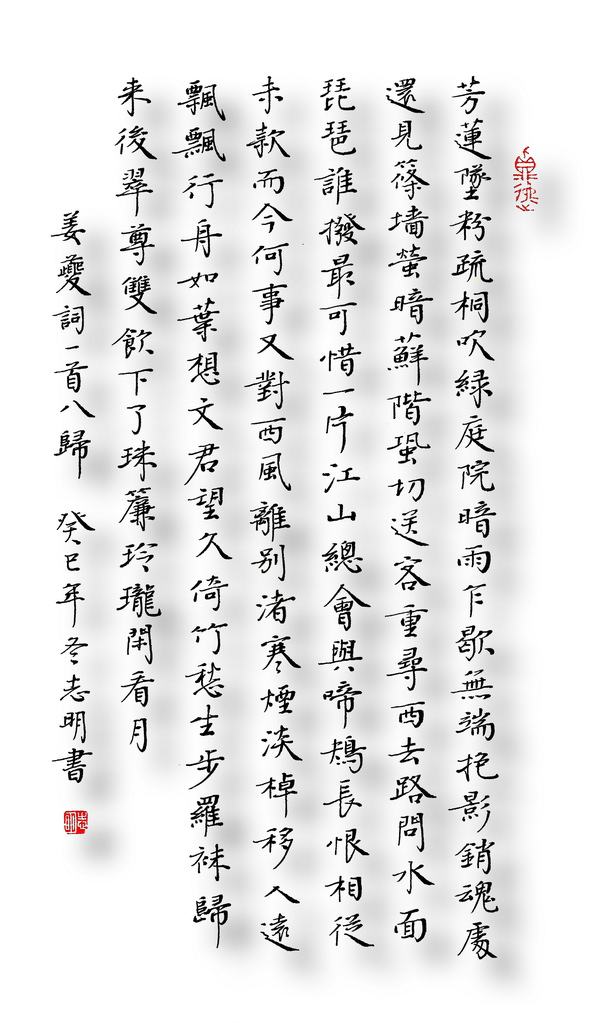 芳蓮墜粉疏桐吹緑庭院暗雨乍歇無端抱影銷魂處
還見篠墻螢暗蘚階蛩切送客重尋西去路問水面
琵琶誰撥最可惜一片江山總會與啼鴂長恨相從
未款而今何事又對西風離別渚寒煙淡棹移人遠
飄飄行舟如葉想文君望久倚竹愁生步羅袜歸
来後翠尊雙飲下了珠簾玲瓏閑看月
姜夔詞一首八歸 癸巳年冬志明書
志明